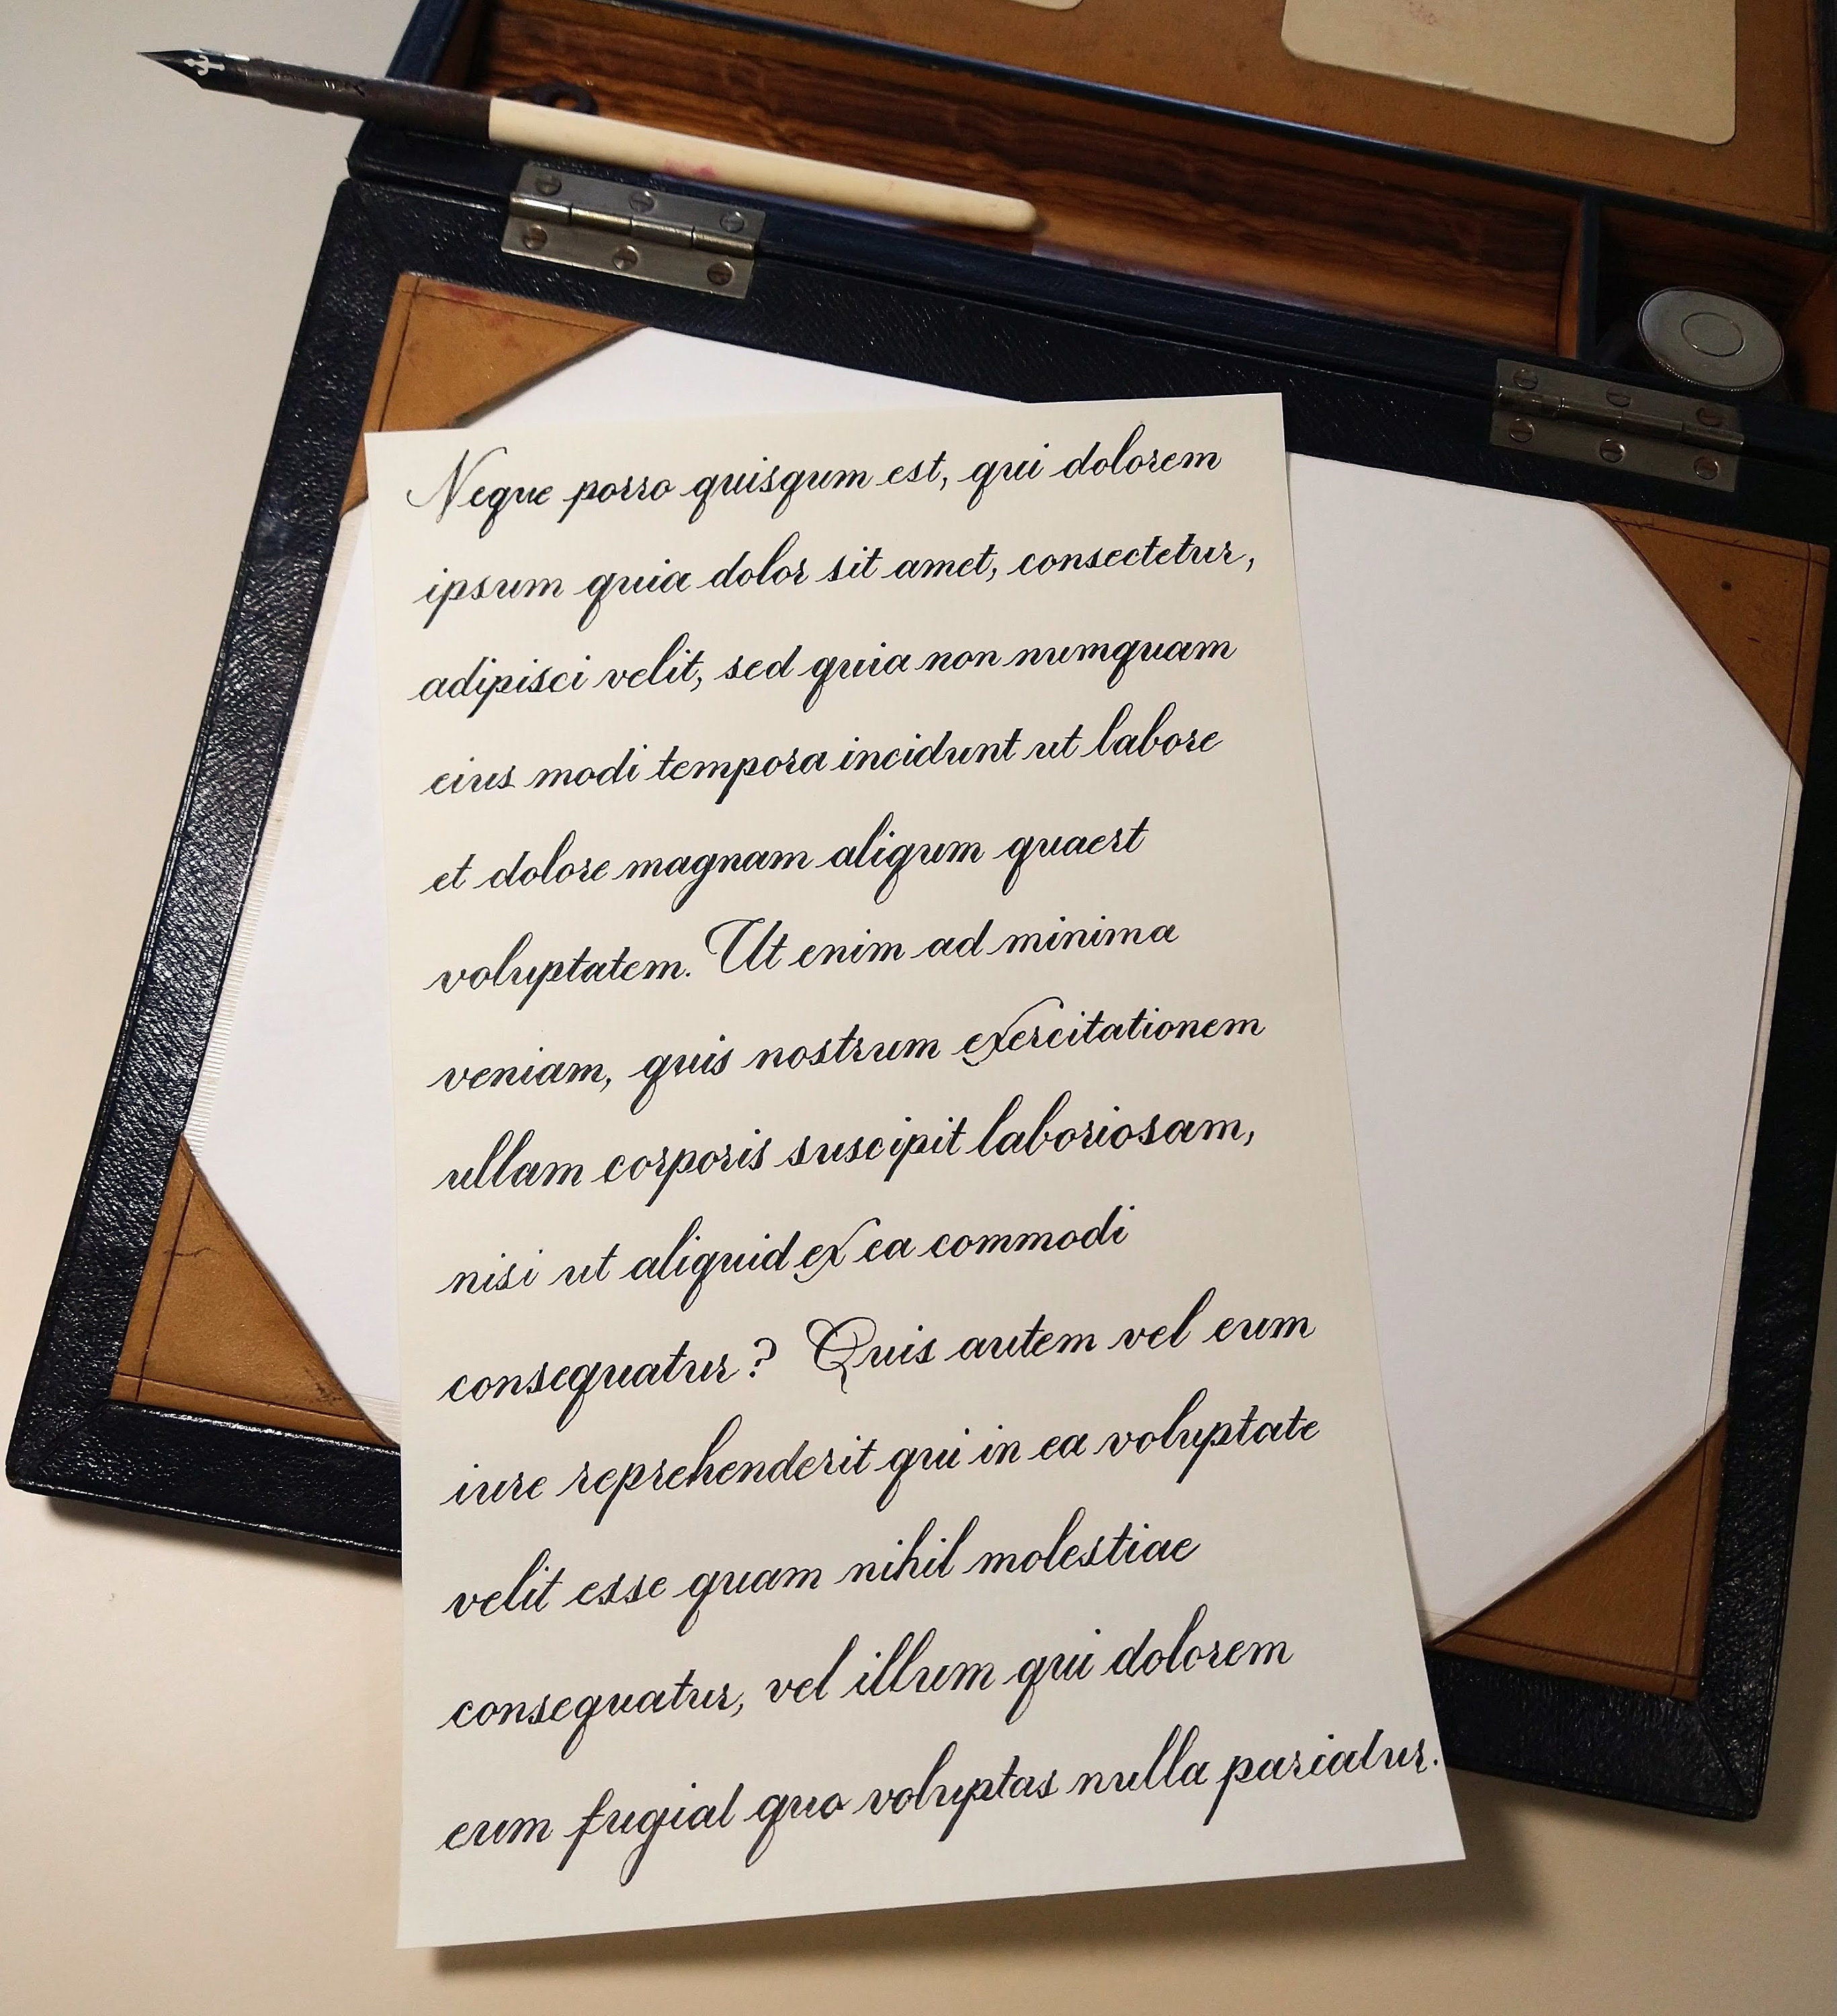 Neque porro quisqum est, qui dolorem
ipsum quia dolor sit amet, consectetur,
adipisci velit, sed quia non numquam
eius modi tempora incidunt ut labore
et dolore magnam aliqum quaert
voluptatem. Ut enim ad minima
veniam, quis nostrum exercitationem
ullam corporis suscipit laboriosam,
nisi ut aliquid ex ea commodi
consequatur? Quis autem vel eum
iure reprehenderit qui in ea voluptate
velit esse quam nihil molestiae
consequatur, vel illum qui dolorem
eum fugial quo voluptas nulla parialur.